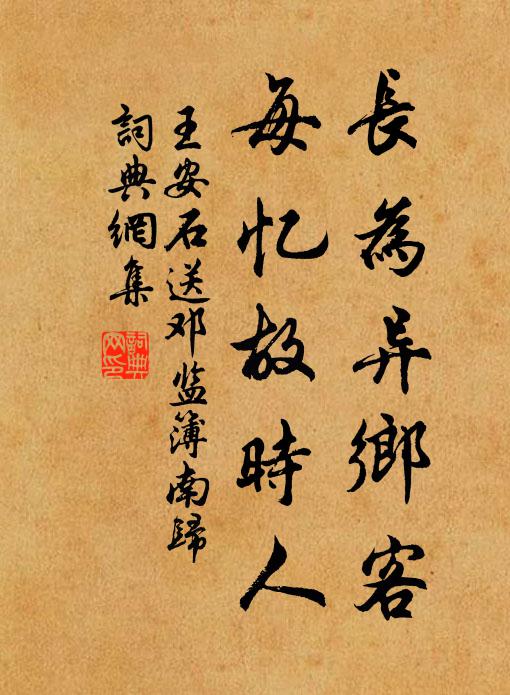 長為异鄉客
每忆故時人
王安石送邓监簿南歸
詞典網集
詞典
网印